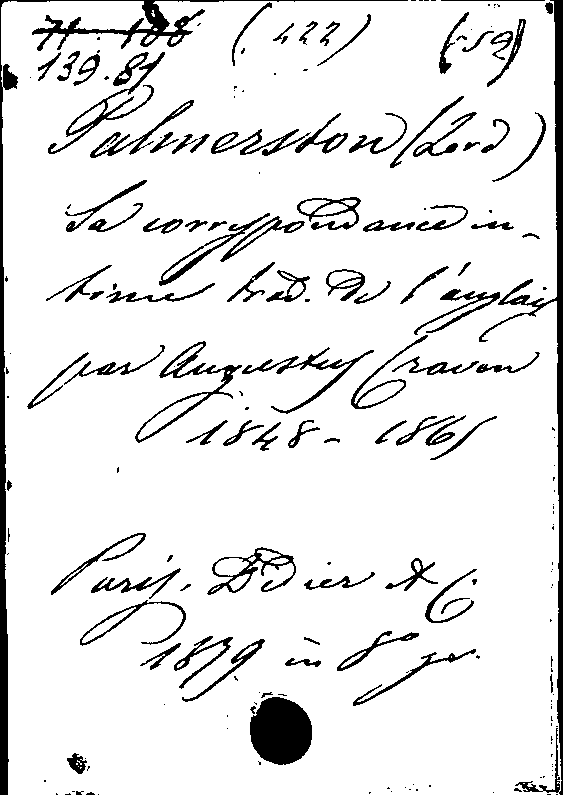 71. 188 (. 422) (59)
139.81
Palmerston (Lord)
Sa correspondance in-
time trad. de l'anglais
par Augustus Craven
1848 - 1865
Paris, Didier & C
1879 in 8° gr.